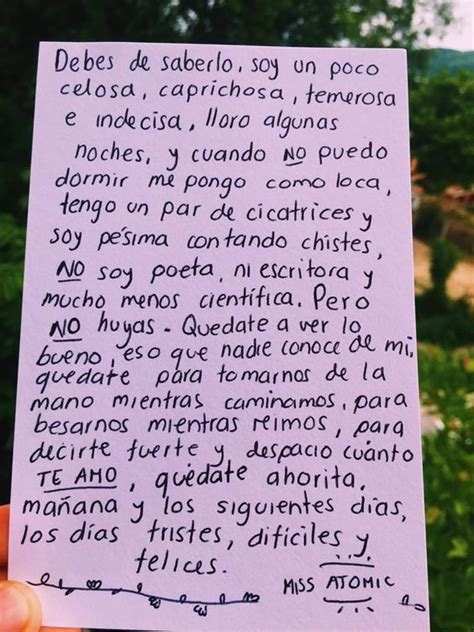 Debes de saberlo, soy un poco
celosa, caprichosa, temerosa
e indecisa, lloro algunas
noches, y cuando NO puedo
dormir me pongo como loca,
tengo un par de cicatrices y
soy pésima contando chistes,
NO soy poeta, ni escritora y
mucho menos científica. Pero
NO huyas. Quedate a ver lo
bueno, eso que nadie conoce de mi,
quedate para tomarnos de la
mano mientras caminamos, para
besarnos mientras reimos, para
decirte fuerte y despacio cuánto
TE AMO, quédate ahorita,
mañana y los siguientes días,
los días tristes, dificiles y
felices.
MISS ATOMIC